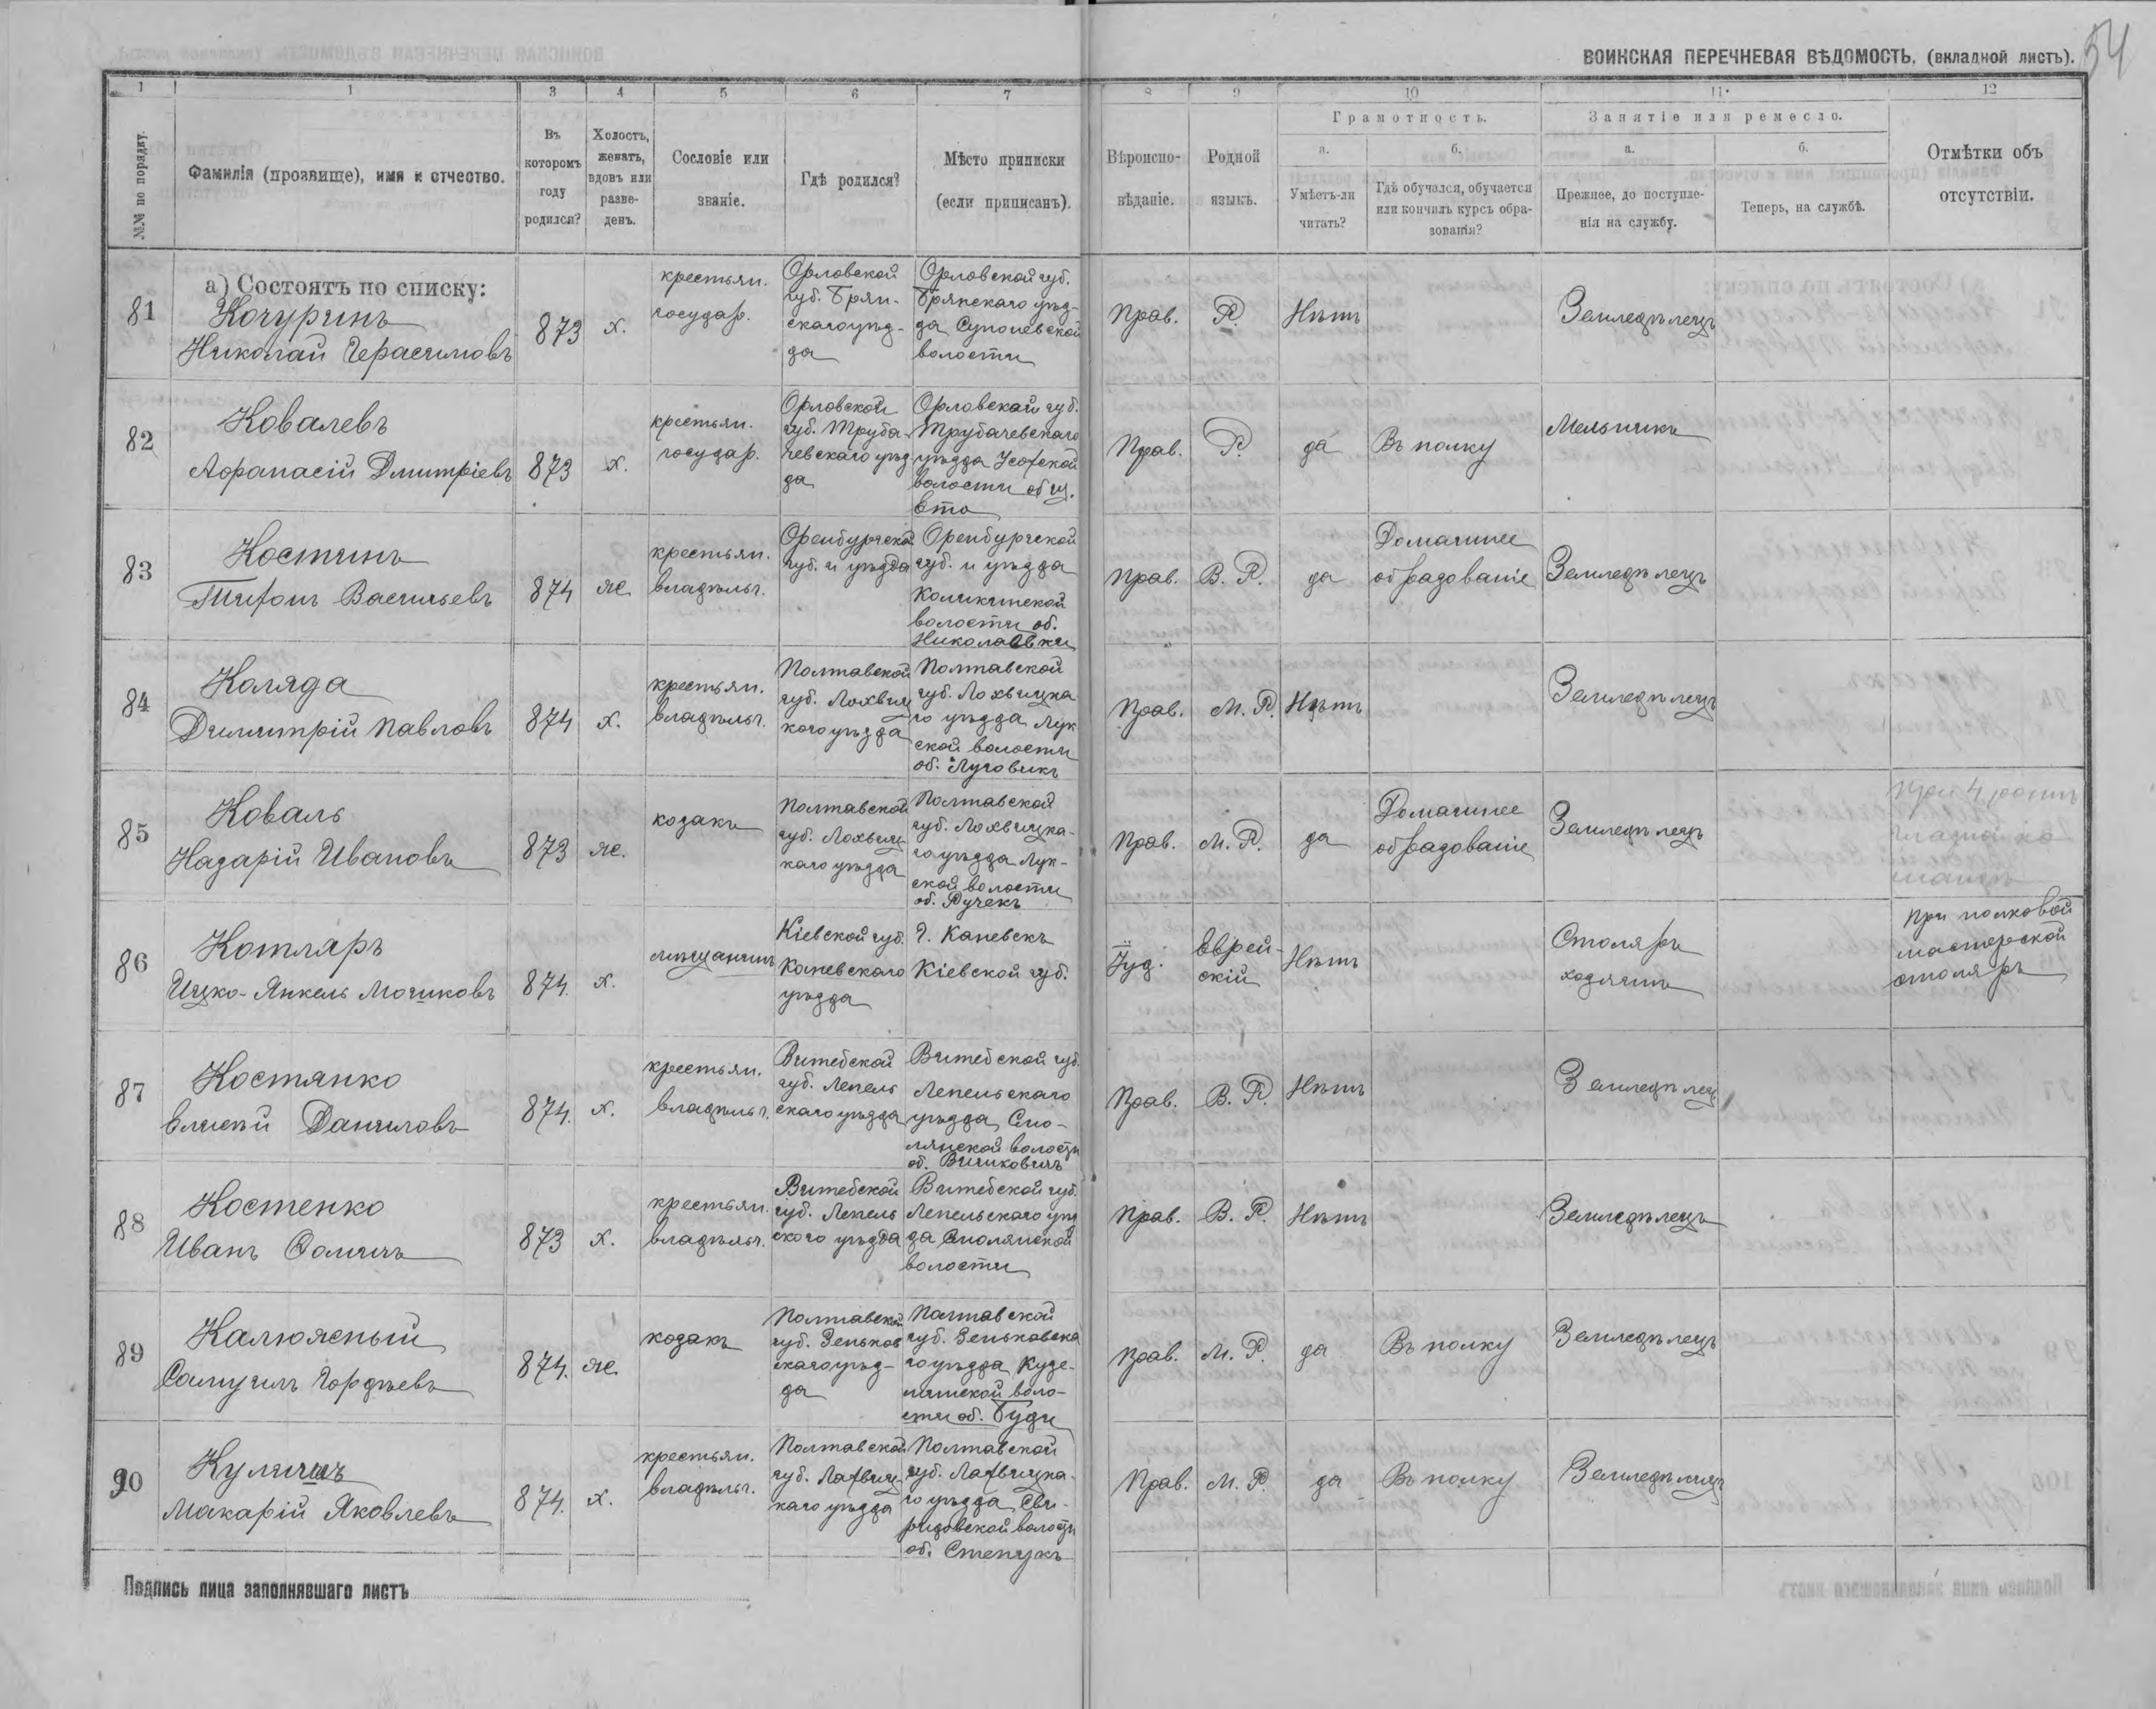 ВОИНСКАЯ ПЕРЕЧНЕВАЯ ВѢДОМОСТЬ, (вкладной листъ).
54
1 1 3 4 5 6 7 8 9 10 11 12
№№ по порядку.
Фамилія (прозвище), имя и отчество.
Въ которомъ году родился?
Холостъ, женатъ, вдовъ или разведенъ.
Сословіе или званіе.
Гдѣ родился?
Мѣсто приписки (если приписанъ).
Вѣроисповѣданіе.
Родной языкъ.
Грамотность.
а. Умѣетъ-ли читать?
б. Гдѣ обучался, обучается или кончилъ курсъ образованія?
Занятіе или ремесло.
а. Прежнее, до поступленія на службу.
б. Теперь, на службѣ.
Отмѣтки объ отсутствіи.
а) Состоятъ по списку:
81
Кочуринъ
Николай Герасимовъ
873
х.
крестьян.
государ.
Орловской
губ. Брян-
скаго уѣз-
да
Орловской губ.
Брянскаго уѣз-
да Супоневской
волости
Прав.
Р.
Нѣтъ
Земледѣлецъ
82
Ковалевъ
Афанасій Дмитріевъ
873
х.
крестьян.
государ.
Орловской
губ. Труб
чевскаго уѣз
да
Орловской губ.
Трубчевскаго
уѣзда Усохской
волости
Прав.
Р.
да
Въ полку
Мельникъ
83
Костинъ
Трифонъ Васильевъ
874
ж
крестьян.
владѣльч.
Оренбургской
губ. и уѣзда
Оренбургской
губ. и уѣзда
волости об.
Николаевки
Прав.
В. Р.
да
Домашнее
образованіе
Земледѣлецъ
84
Коляда
Димитрій Павловъ
874
х.
крестьян.
владѣльч.
Полтавской
губ. Лохвиц
каго уѣзда
Полтавской
губ. Лохвицка
го уѣзда Лук
ской волости
об. Луговикъ
Прав.
М. Р.
Нѣтъ
Земледѣлецъ
85
Коваль
Назарій Ивановъ
873
ж.
козакъ
Полтавской
губ. Лохвиц
каго уѣзда
Полтавской
губ. Лохвицка-
го уѣзда Лук-
ской волости
об. Ручекъ
Прав.
М. Р.
да
Домашнее
образованіе
Земледѣлецъ
при 4 ротѣ
86
Котляръ
Ицко-Янкель Мошковъ
874.
х.
мѣщанинъ
Кіевской губ.
Каневскаго
уѣзда
Г. Каневскъ
Кіевской губ.
Іуд.
Еврей-
скій
Нѣтъ
Столяръ
ходячій
При полковой
мастерской
столяръ
87
Костянко
Елисей Даниловъ
874.
х.
крестьян.
владѣльч.
Витебской
губ. Лепель
скаго уѣзда
Витебской губ.
Лепельскаго
уѣзда Смо-
лянской волости
об.
Прав.
В. Р.
Нѣтъ
Земледѣлецъ
88
Костенко
Иванъ Фоминъ
873
х.
крестьян.
владѣльч.
Витебской
губ. Лепель
скаго уѣзда
Витебской губ.
Лепельскаго уѣз
да Смолянской
волости
Прав.
В. Р.
Нѣтъ
Земледѣлецъ
89
Калюжный
Самуилъ Гордѣевъ
874.
ж.
козакъ
Полтавской
губ. Зеньков
скаго уѣз-
да
Полтавской
губ. Зеньковска
го уѣзда Кузе-
минской воло-
сти об. Буди
Прав.
М. Р.
да
Въ полку
Земледѣлецъ
90
Куличъ
Макарій Яковлевъ
874.
х.
крестьян.
владѣльч.
Полтавской
губ. Лахвиц
каго уѣзда
Полтавской
губ. Лахвицка-
го уѣзда Сви-
ридовской волости
об. Степукъ
Прав.
М. Р.
да
Въ полку
Земледѣлецъ
Подпись лица заполнявшаго листъ